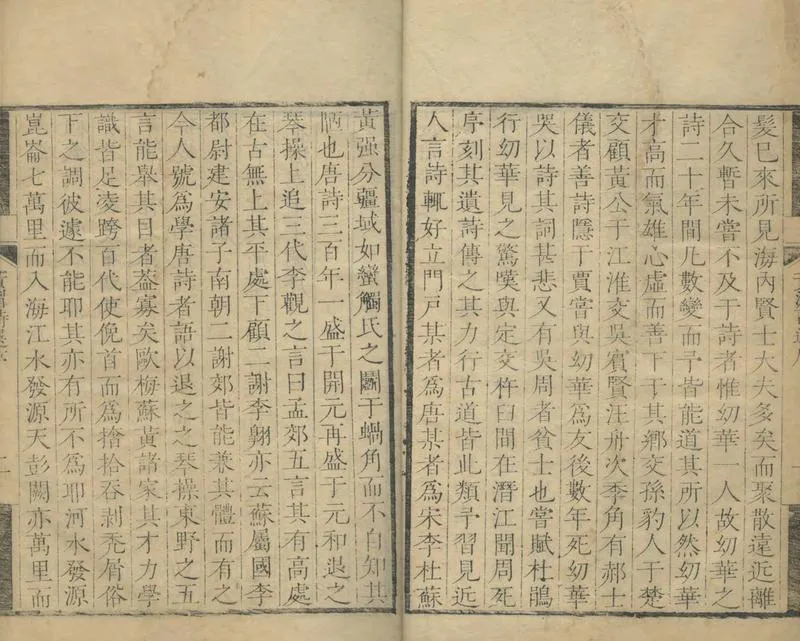 髮已來所見海內賢士大夫多矣而聚散遠近離
合久暫未嘗不及于詩者惟幼華一人故幼華之
詩二十年間凡數變而予皆能道其所以然幼華
才高而氣雄心虛而善下于其鄉交孫豹人于楚
交顧黃公于江淮交吳賓賢汪舟次季角有郝士
儀者善詩隱于賈嘗與幼華爲友後數年死幼華
哭以詩其詞甚悲又有吳周者貧士也嘗賦杜鵑
行幼華見之驚嘆與定交杵臼間在潛江聞周死
序刻其遺詩傳之其力行古道皆此類予習見近
人言詩輒好立門戶某者爲唐某者爲宋李杜蘇
黃强分疆域如蠻觸氏之鬭于蝸角而不自知其
陋也唐詩三百年一盛于開元再盛于元和退之
琴操上追三代李觀之言曰孟郊五言其有高處
在古無上其平處下顧二謝李翺亦云蘇屬國李
都尉建安諸子南朝二謝郊皆能兼其體而有之
今人號爲學唐詩者語以退之之琴操東野之五
言能舉其目者蓋寡矣歐梅蘇黃諸家其才力學
識皆足淩跨百代使俛首而爲撏拾吞剥禿屑俗
下之調彼遽不能耶其亦有所不爲耶河水發源
崑崙七萬里而入海江水發源天彭闕亦萬里而